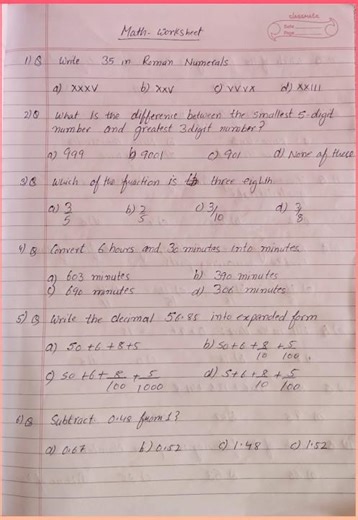 classmate
Date
Page
Math- Worksheet
1) Q Write 35 in Roman Numerals
a) XXXV b) XXV c) VVVX d) XXIII
2) Q What is the difference between the smallest 5-digit
number and greatest 3digit number?
a) 999 b) 9001 c) 901 d) None of these
3) Q Which of the fraction is three eighth
a) 3/5 b) 2/5 c) 3/10 d) 3/8
4) Q Convert 6 hours and 30 minutes into minutes
a) 603 minutes b) 390 minutes
c) 690 minutes d) 306 minutes
5) Q Write the decimal 56.85 into expanded form
a) 50+6+8+5 b) 50+6+8/10+5/100
c) 50+6+8/100+5/1000 d) 5+6+8/10+5/100
6) Q Subtract 0.48 from 1?
a) 0.67 b) 0.52 c) 1.48 c) 1.52